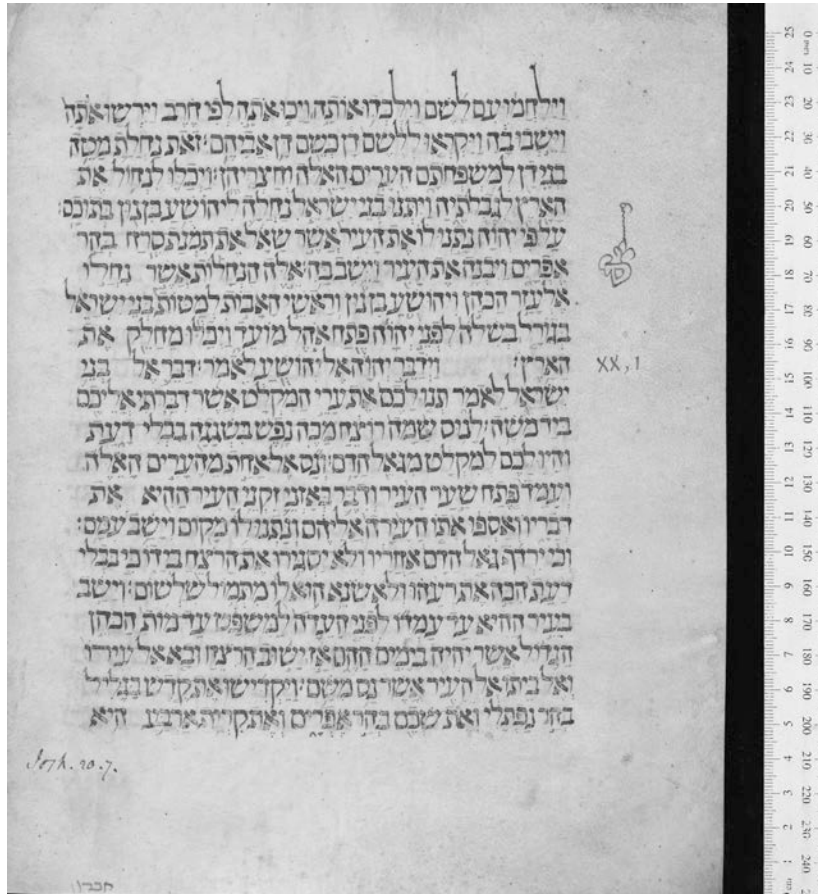 וילחמו עם לשם וילכדו אותה ויכו אתה לפי חרב וירשו אתה
וישבו בה ויקראו ללשם דן כשם דן אביהם׃ זאת נחלת מטה
בני דן למשפחתם הערים האלה וחצריהן׃ ויכלו לנחול את
הארץ לגבלתיה ויתנו בני ישראל נחלה ליהושע בן נון בתוכם׃
על פי יהוה נתנו לו את העיר אשר שאל את תמנת סרח בהר
אפרים ויבנה את העיר וישב בה׃ אלה הנחלות אשר נחלו
אלעזר הכהן ויהושע בן נון וראשי האבות למטות בני ישראל
בגורל בשלה לפני יהוה פתח אהל מועד ויכלו מחלק את
הארץ׃ וידבר יהוה אל יהושע לאמר׃ דבר אל בני
XX, 1
ישראל לאמר תנו לכם את ערי המקלט אשר דברתי אליכם
ביד משה׃ לנוס שמה רוצח מכה נפש בשגגה בבלי דעת
והיו לכם למקלט מגאל הדם׃ ונס אל אחת מהערים האלה
ועמד פתח שער העיר ודבר באזני זקני העיר ההיא את
דבריו ואספו אתו העירה אליהם ונתנו לו מקום וישב עמם׃
וכי ירדף גאל הדם אחריו ולא יסגירו את הרצח בידו כי בבלי
דעת הכה את רעהו ולא שנא הוא לו מתמול שלשום׃ וישב
בעיר ההיא עד עמדו לפני העדה למשפט עד מות הכהן
הגדול אשר יהיה בימים ההם אז ישוב הרצח ובא אל עירו
ואל ביתו אל העיר אשר נס משם׃ ויקדישו את קדש בגליל
בהר נפתלי ואת שכם בהר אפרים ואת קרית ארבע היא
Josh. 20. 7.
חברון